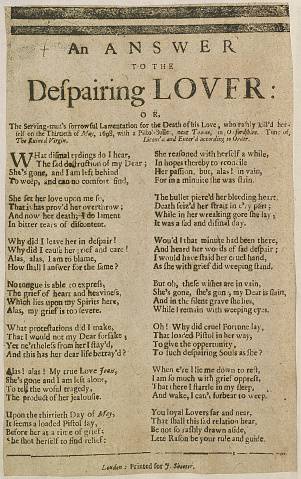 An ANSWER
TO THE
Despairing LOVER:
OR,
The Serving-man's sorrowful Lamentation for the Death of his Love, who rashly kill'd her-
self on the Thirtieth of May, with a Pistol-Bullet, near in Oxfordshire. Tune of,
The Ruined Virgin. Licens'd and Enter'd according to Order.
WHat dismal tydings do I hear,
The sad destruction of my Dear;
She's gone, and I am left behind
To weep, and can no comfort find,
She set her love upon me so,
That it has prov'd her overthrow;
And now her death, I do lament
In bitter tears of discontent.
Why did I leave her in despair!
Why did I cause her grief and care!
Alas, alas, I am to blame,
How shall I answer for the same?
No tongue is able to express,
The grief of heart and heaviness,
Which lies upon my Spirits here,
Alas, my grief is too severe.
What protestations did I make,
That I would not my Dear forsake,
Yet ne'rtheless from her I stay'd,
And this has her dear life betray'd?
Alas! alas! My true Love Joan,
She's gone and I am left alone,
To tell the world tragedy,
The product of her jealousie.
Upon the thirtieth Day of May,
It seems a loaded Pistol lay,
Before her at a time of grief:
She shot herself to find relief:
She reasoned with herself a while,
In hopes thereby to reconcile
Her passion, but, alas! in vain,
For in a minute she was slain.
The bullet pierc'd her bleeding heart,
Death seiz'd her streat in e'ry part;
While in her wreaking gore she lay,
It was a sad and dismal day.
Wou'd I that minute had been there,
And heard her words of sad despair;
I would have staid her cruel hand,
As she with grief did weeping stand.
But oh, these wishes are in vain,
She's gone, she's gone, my Dear is slain,
And in the silent grave she lies,
While I remain with weeping eyes.
Oh! Why did cruel Fortune lay,
That loaded Pistol in her way,
To give the opportunity,
To such despairing Souls as she?
When e're I lie me down to rest,
I am so much with grief opprest,
That there I startle in my sleep,
And wake, I can't forbear to weep.
You loyal Lovers far and near,
That shall this sad relation hear,
Be not so rashly drawn aside,
Lett Reason be your rule and guide.
London: Printed for J. Shooter.